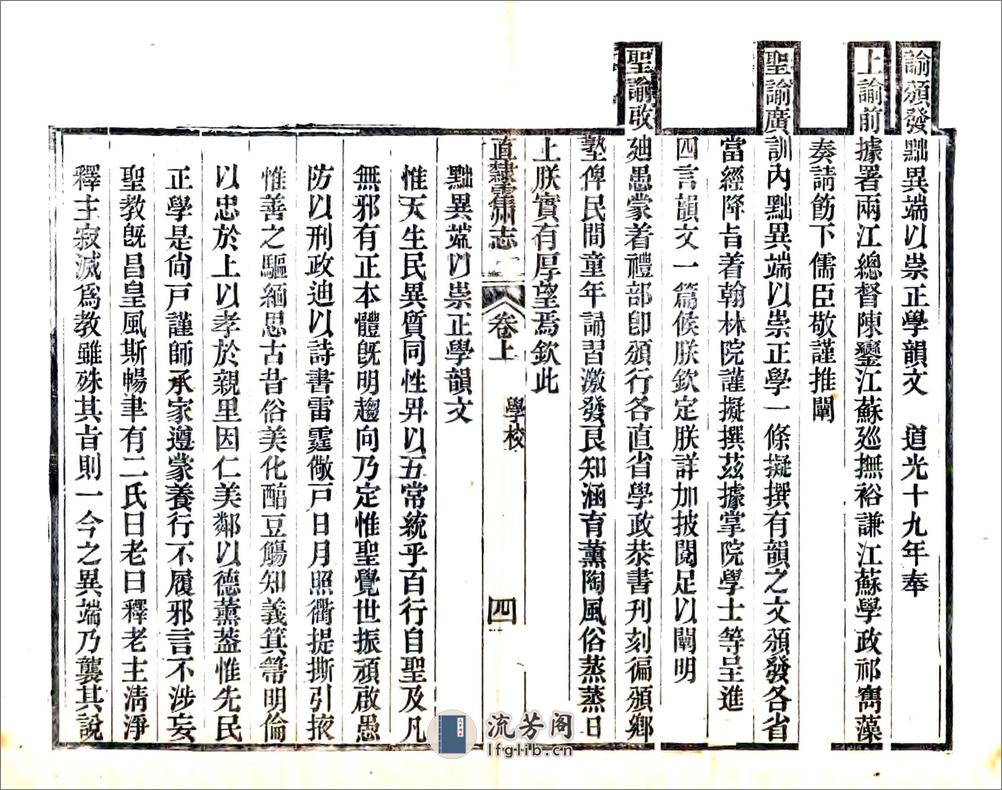 諭頒發黜異端以崇正學韻文　道光十九年奉
上諭前據署兩江總督陳鑾江蘇廵撫裕謙江蘇學政祁寯藻
奏請飭下儒臣敬謹推闡
聖諭廣訓內黜異端以崇正學一條擬撰有韻之文頒發各省
當經降旨着翰林院謹擬撰茲據掌院學士等呈進
四言韻文一篇候朕欽定朕詳加披閱足以闡明
聖諭啟廸愚蒙着禮部卽頒行各直省學政恭書刊刻徧頒鄉
塾俾民間童年誦習激發良知涵育薰陶風俗蒸蒸日
上朕實有厚望焉欽此
直隸霸州志　卷上　學校　四
黜異端以崇正學韻文
惟天生民異質同性昇以五常統乎百行自聖及凡
無邪有正本體旣明趨向乃定惟聖覺世振頑啟愚
防以刑政迪以詩書雷霆儆戸日月照衢提撕引掖
惟善之驅緬思古昔俗美化醕豆觴知義箕箒明倫
以忠於上以孝於親里因仁美鄰以德薰葢惟先民
正學是尙戸謹師承家遵蒙養行不履邪言不涉妄
聖教旣昌皇風斯暢聿有二氏曰老曰釋老主淸淨
釋主寂滅爲教雖殊其旨則一今之異端乃襲其說
流芳阁
lfglib.cn